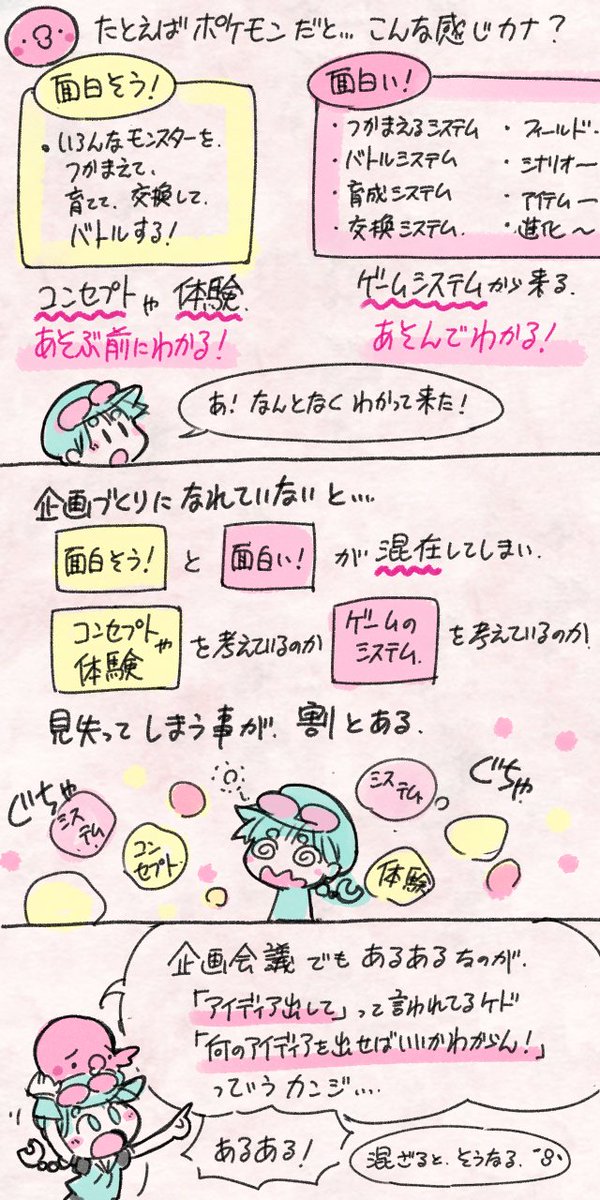 たとえばポケモンだと… こんな感じカナ？
面白そう!
・いろんなモンスターを.
つかまえて、
育てて、交換して、
バトルする!
コンセプトや 体験.
あそぶ前にわかる!
面白い!
・つかまえるシステム
・バトルシステム
・育成システム
・交換システム.
・フィールド
・シナリオー
・アイテムー
・進化〜
ゲームシステムから来る.
あそんでわかる!
あ! なんとなく わかって来た!
企画づくりに なれていないと…
面白そう! と 面白い! が 混在してしまい.
コンセプトや
体験
を考えているのか
ゲームの
システム.
を考えているのか
見失って しまう事が. 割とある.
ぐちゃ
システム
コン
セプト
システム
体験
ぐちゃ
企画会議 でも あるあるなのが.
「アイディア出して」って言われてるケド
「何のアイディアを出せばいいかわからん!」
っていう カンジ….
あるある!
混ざると. そうなる.